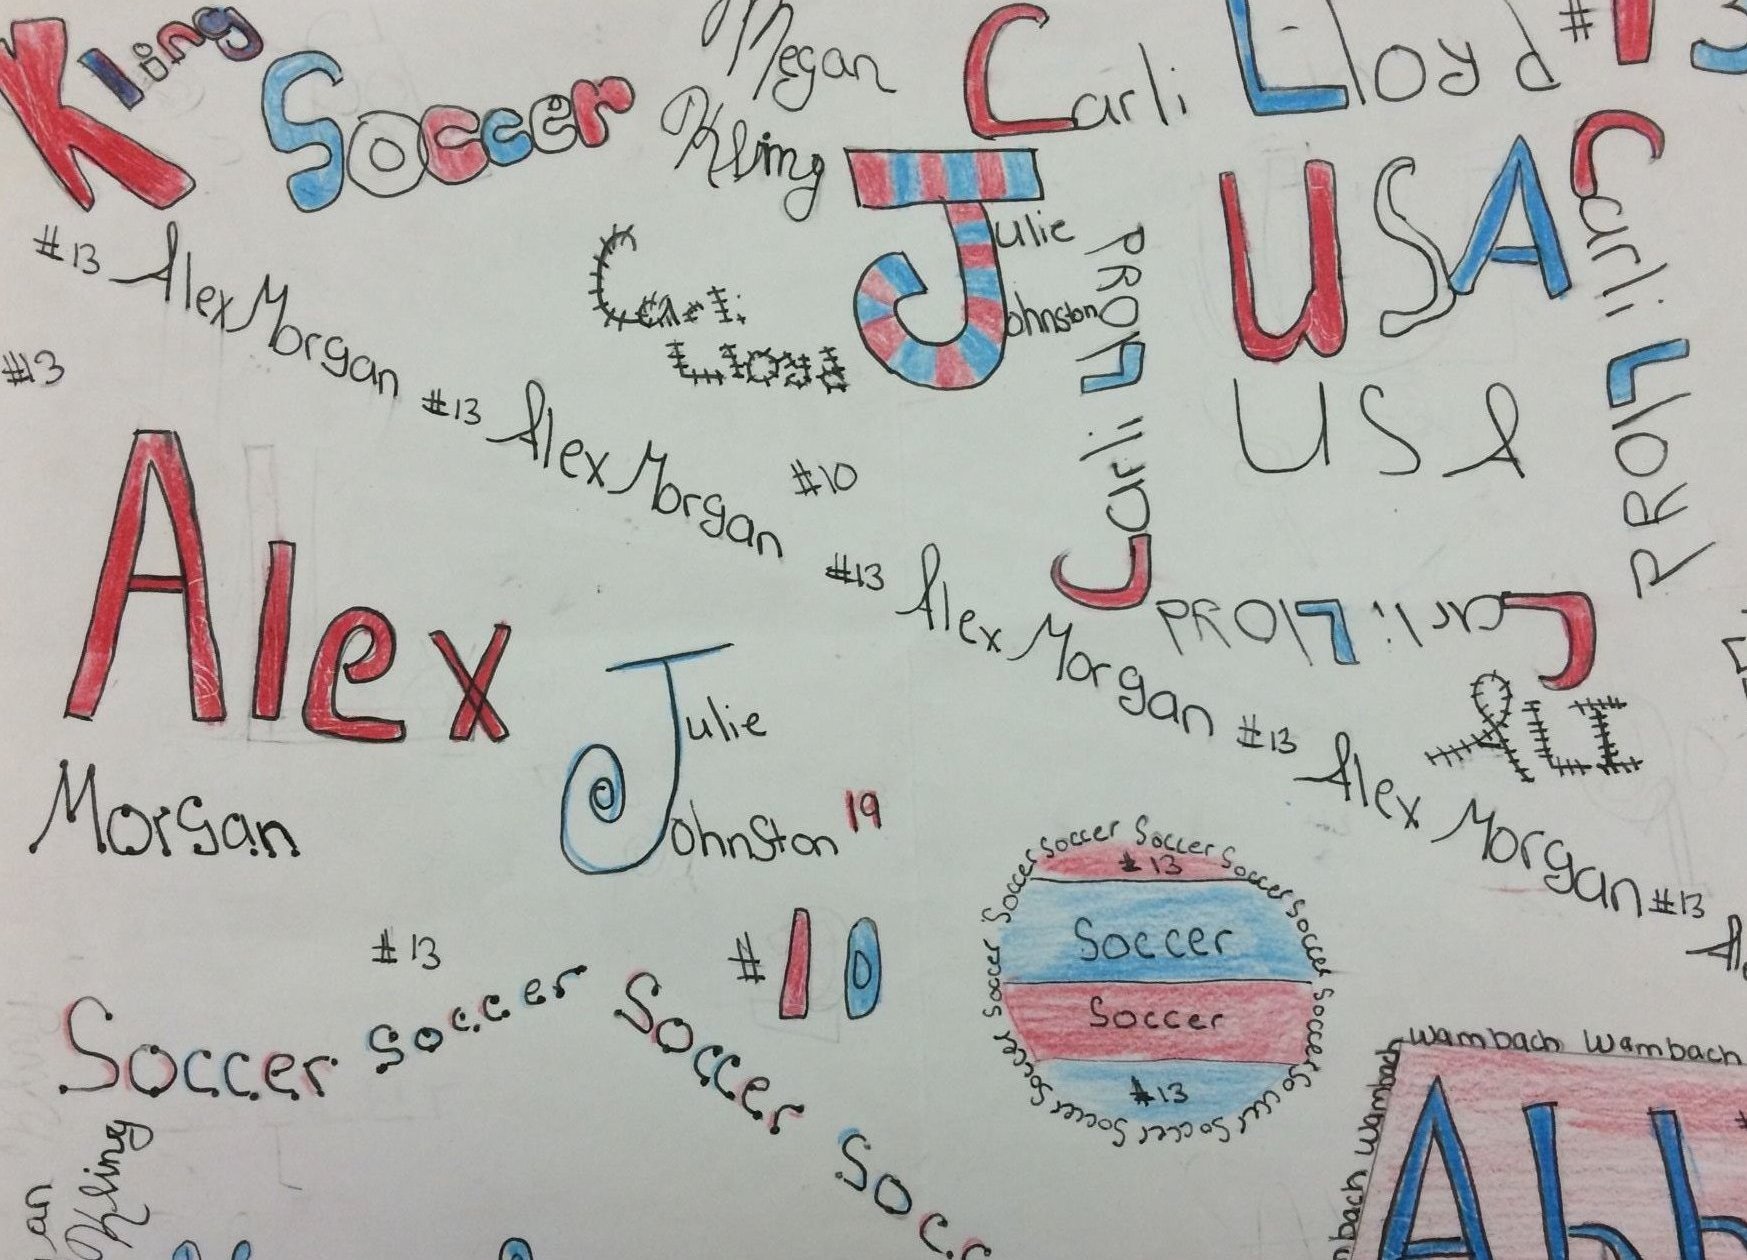 Kling
Soccer
Megan
Kling
Carli Lloyd #13
#13 Alex Morgan #13 Alex Morgan #13 Alex Morgan #13 Alex Morgan #13
Carli
Lloyd
Julie
Johnston
Carli Lloyd
USA
Carli Lloyd
#13
USA
#10
Alex
Morgan
Carli Lloyd
Julie
Johnston 19
#13
#10
Soccer Soccer Soccer Soccer Soccer Soccer Soccer Soccer Soccer Soccer Soccer Soccer Soccer
#13
Soccer
Soccer
#13
Soccer soccer Soccer
Kling
an
Wambach Wambach
Wambach
Abb